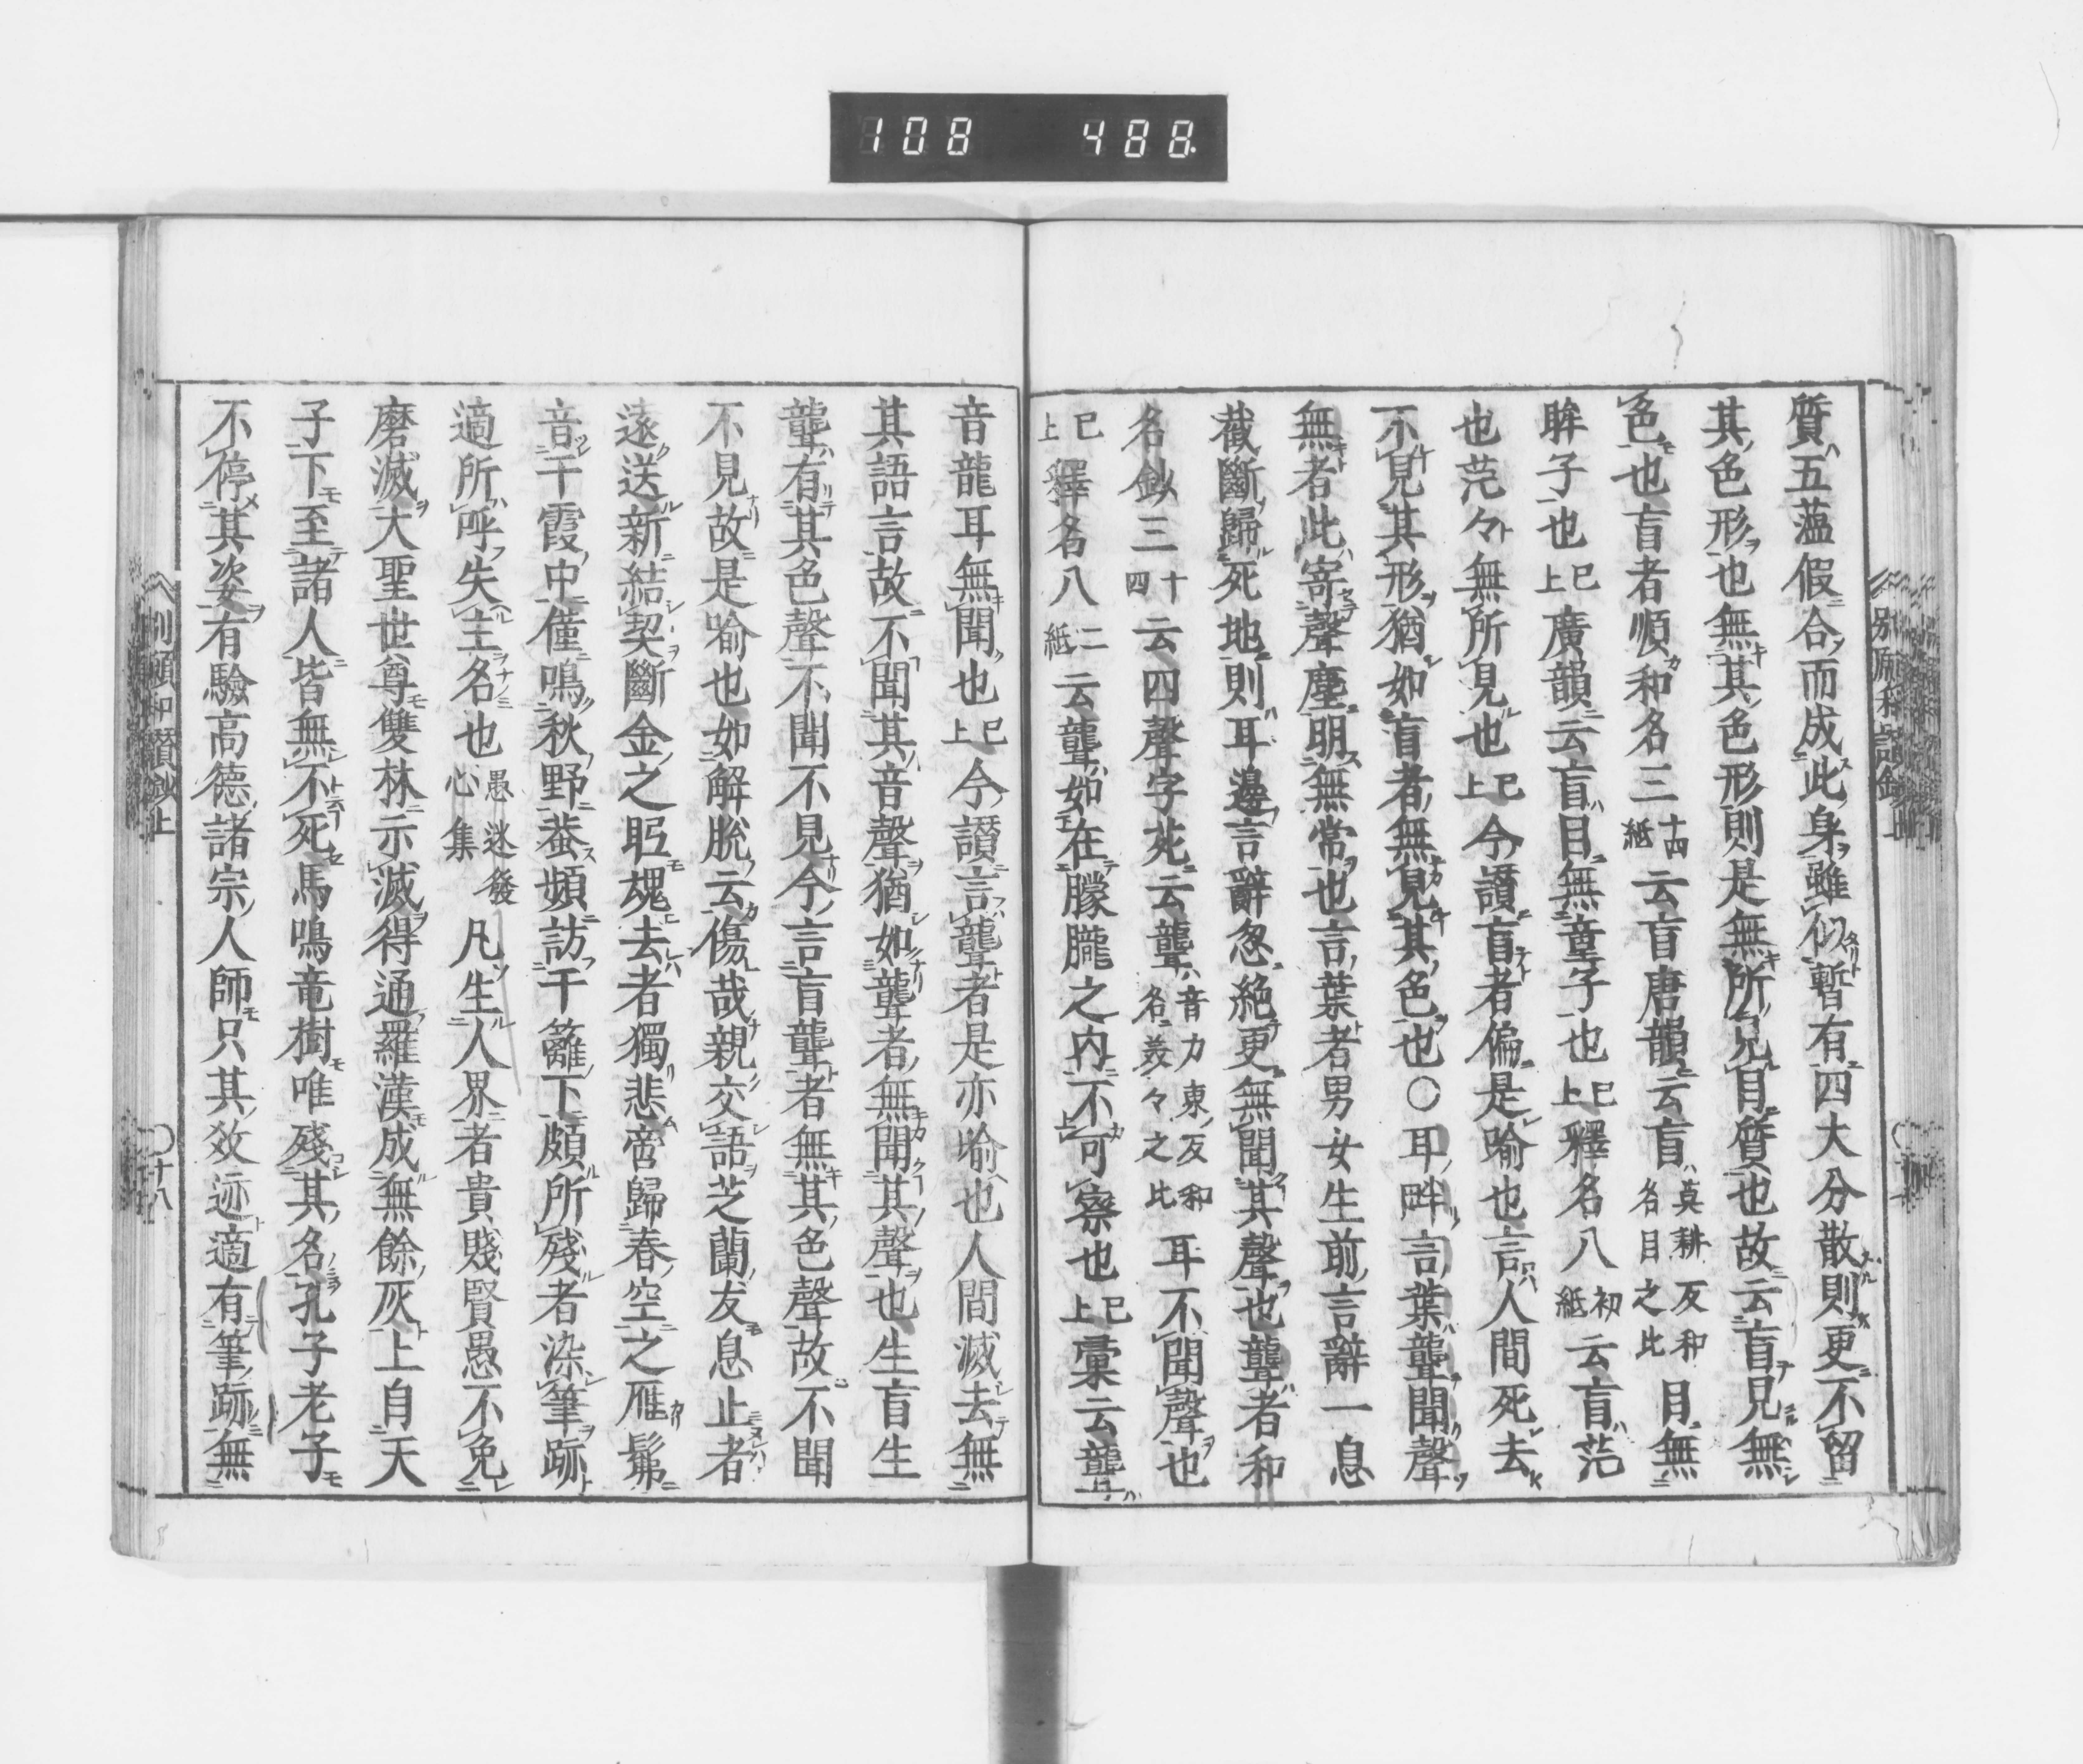 108 488
質五薀假合而成此身雖似暫有四大分散則更不留
其色形也無其色形則是無所見目質也故云盲見無
色也盲者順和名三十四紙云盲唐韻云盲莫耕反和名目之比目無
眸子也已上廣韻云盲目無童子也已上釋名八初紙云盲茫
也茫々無所見也已上今讃盲者偏是喻也言人間死去
不見其形猶如盲者無見其色也〇耳畔言葉聾聞聲
無者此寄聲塵明無常也言葉者男女生前言辭一息
截斷歸死地則耳邊言辭忽絶更無聞其聲也聾者和
名鈔三十四云四聲字苑云聾音力東反和名美々之比耳不聞聲也
已上釋名八二紙云聾如在朦朧之内不可察也已上彙云聾
音龍耳無聞也已上今讃言聾者是亦喻也人間滅去無
其語言故不聞其音聲猶如聾者無聞其聲也生盲生
聾有其色聲不聞不見今言盲聾者無其色聲故不聞
不見故是喻也如解脱云傷哉親交語芝蘭友息止者
遠送新結契斷金之眤魂去者獨悲啼歸春空之雁髴
音干霞中僅鳴秋野蛬頻訪干籬下頗所殘者染筆跡
適所呼失主名也愚迷發心集凡生人界者貴賤賢愚不免
磨滅大聖世尊雙林示滅得通羅漢成無餘灰上自天
子下至諸人皆無不死馬鳴竜樹唯殘其名孔子老子
不停其姿有驗高德諸宗人師只其效迹適有筆跡無
別願和讃鈔上
〇十八